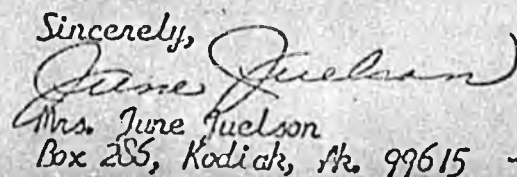 Sincerely,
June Juelson
Mrs. June Juelson
Box 285, Kodiak, Ak. 99615